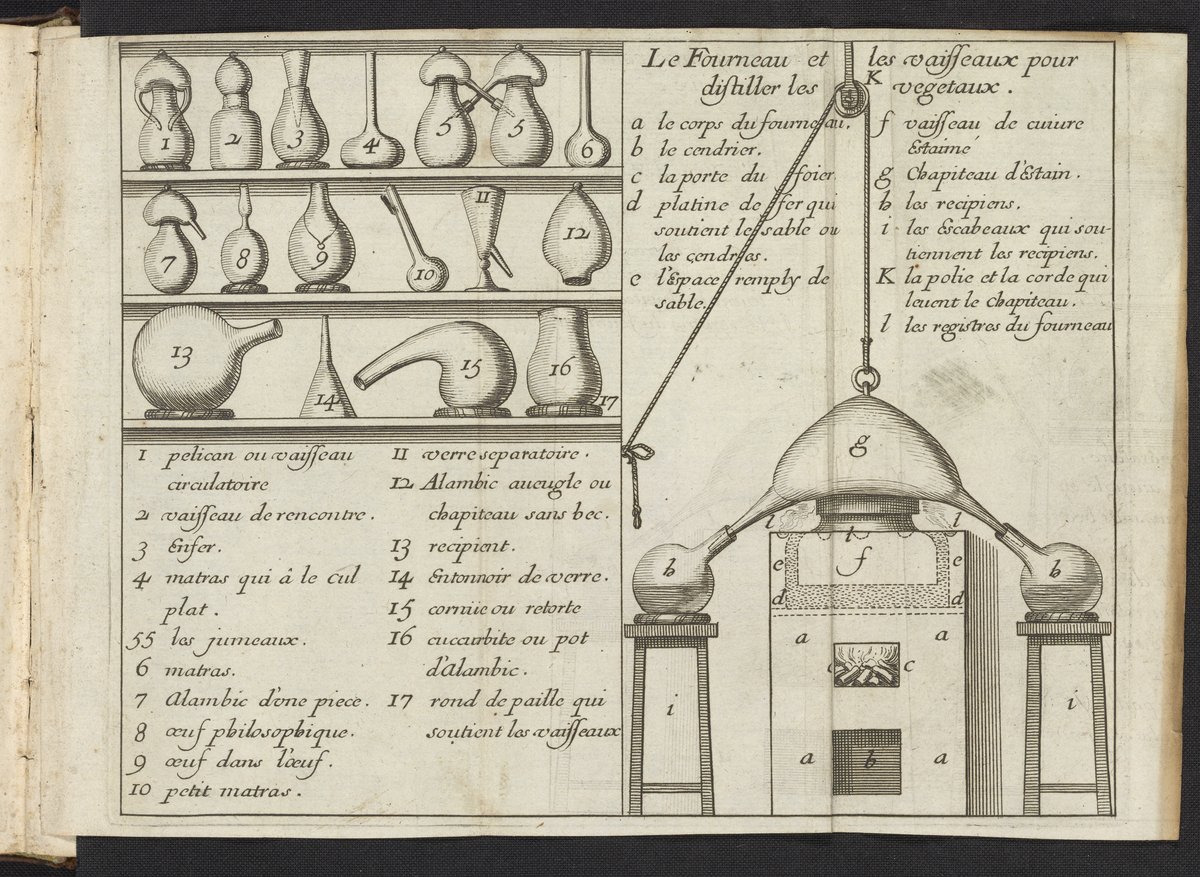 1
2
3
4
5
5
6
7
8
9
10
11
12
13
14
15
16
17
1 pelican ou vaisseau
circulatoire
2 vaisseau de rencontre.
3 Enfer.
4 matras qui â le cul
plat.
55 les jumeaux.
6 matras.
7 Alambic d'vne piece.
8 œuf philosophique.
9 œuf dans l'œuf.
10 petit matras.
11 verre separatoire.
12 Alambic aueugle ou
chapiteau sans bec.
13 recipient.
14 Entonnoir de verre.
15 cornüe ou retorte
16 cuccurbite ou pot
d'Alambic.
17 rond de paille qui
soutient les vaisseaux
Le Fourneau et les vaisseaux pour
distiller les vegetaux.
a le corps du fourneau.
b le cendrier.
c la porte du foier
d platine de fer qui
soutient le sable ou
les cendres.
e l'Espace remply de
sable.
f vaisseau de cuiure
Estaime
g Chapiteau d'Estain.
h les recipiens.
i les Escabeaux qui sou-
tiennent les recipiens.
K la polie et la corde qui
leuent le chapiteau.
l les registres du fourneau
K
g
l
l
l
h
h
e
f
e
d
d
a
a
c
c
i
i
a
b
a